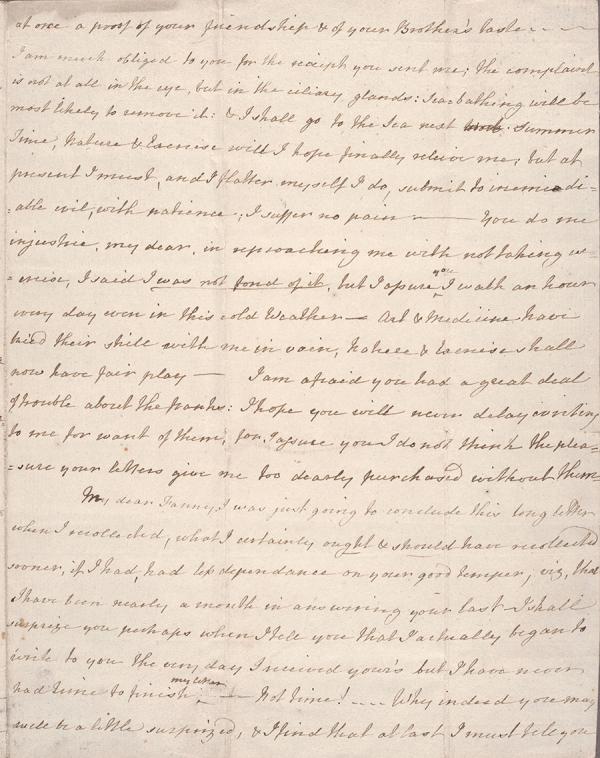 at once a proof of your friendship & of your Brother's taste. — —
I am much obliged to you for the receipt you sent me; the complaint
is not at all in the eye, but in the ciliary glands: Sea bathing will be
most likely to remove it: & I shall go to the Sea next summer
Time, Nature & Exercise will I hope finally relieve me; but at
present I must, and I flatter myself I do, submit to irremedi=
=able evil, with patience; I suffer no pain — — You do me
injustice, my dear, in reproaching me with not taking ex=
=ercise, I said I was not fond of it, but I assure you I walk an hour
every day even in this cold Weather — Art & Medicine have
tried their skill with me in vain, Nature & Exercise shall
now have fair play — I am afraid you had a great deal
of trouble about the franks: I hope you will never delay writing
to me for want of them, for I assure you I do not think the plea=
=sure your letters give me too dearly purchased without them —
My dear Fanny, I was just going to conclude this long letter
when I recollected, what I certainly ought & should have recollected
sooner, if I had, had less dependance on your good temper; viz, that
I have been nearly a month in answering your last — I shall
surprize you perhaps when I tell you that I actually began to
write to you the very day I received your's but I have never
had time to finish my letter; — Not time! .... Why indeed you may
well be a little surprized, & I find that at last I must tell you